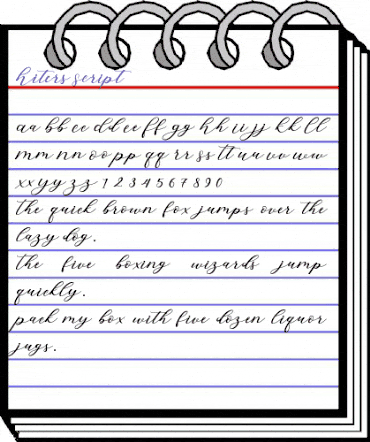 hiters script
aa bb cc dd ee ff gg hh ii jj kk ll
mm nn oo pp qq rr ss tt uu vv ww
xx yy zz 1 2 3 4 5 6 7 8 9 0
the quick brown fox jumps over the
lazy dog.
the five boxing wizards jump
quickly.
pack my box with five dozen liquor
jugs.